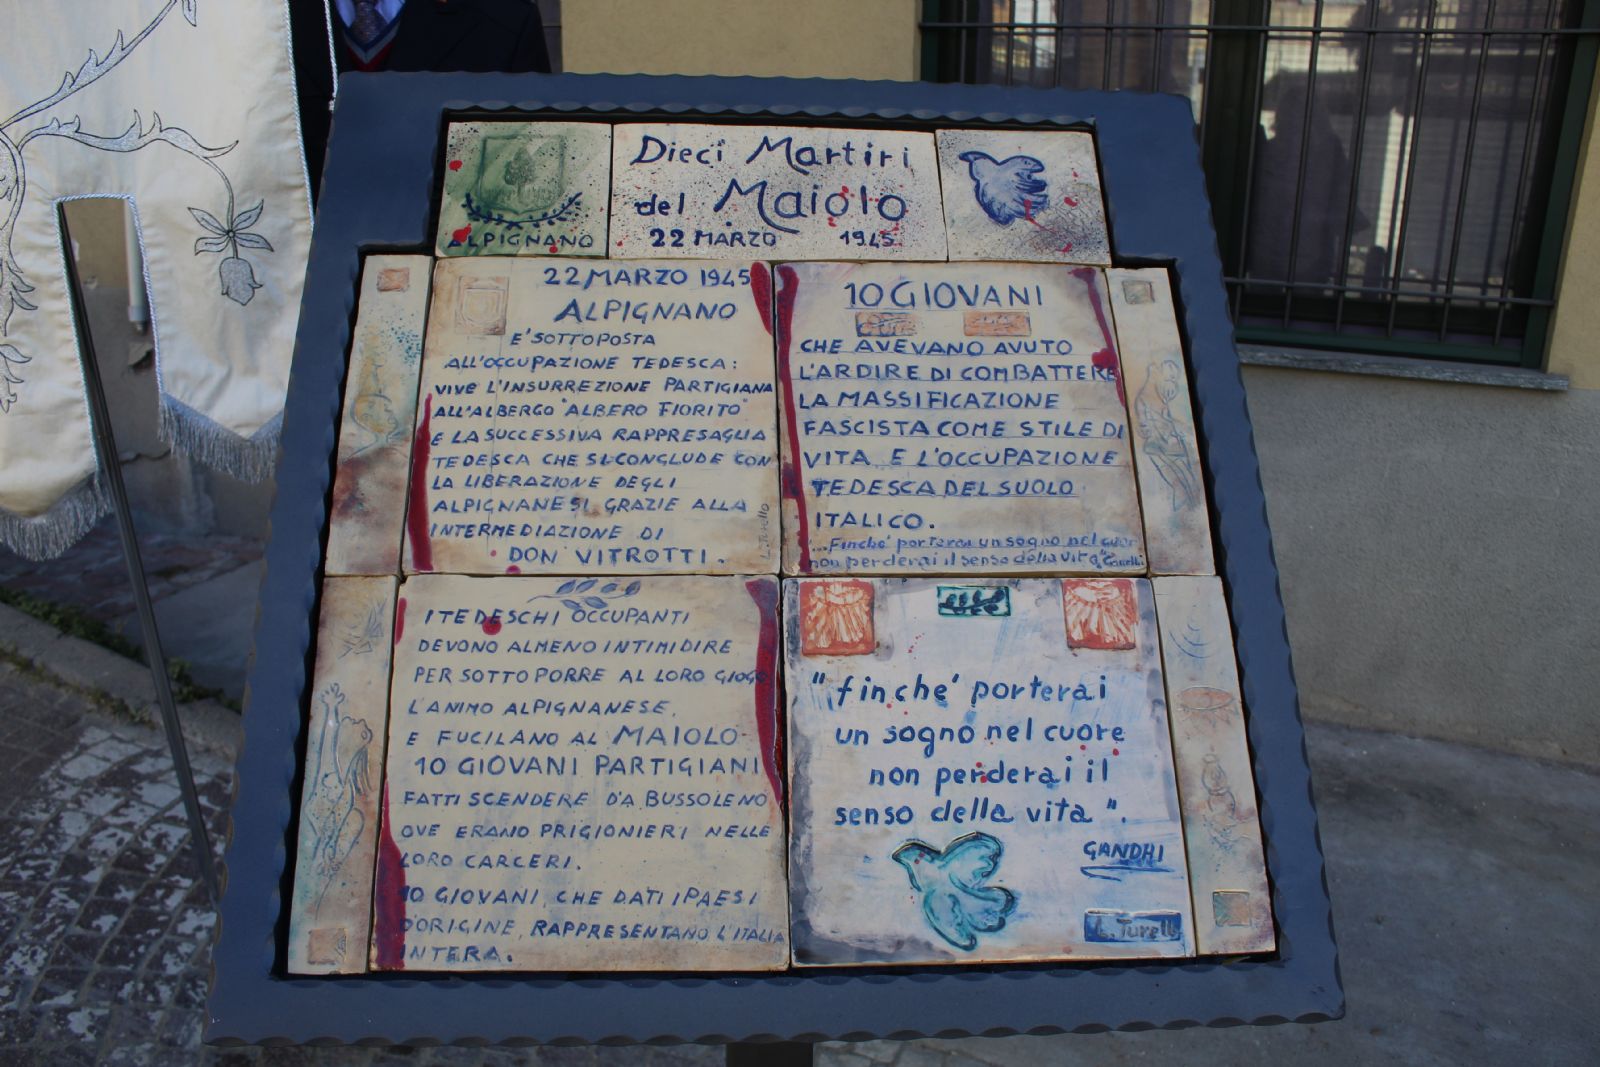 ALPIGNANO
Dieci Martiri
del Maiolo
22 MARZO 1945
22 MARZO 1945
ALPIGNANO
E' SOTTOPOSTA
ALL'OCCUPAZIONE TEDESCA:
VIVE L'INSURREZIONE PARTIGIANA
ALL'ALBERGO "ALBERO FIORITO"
E LA SUCCESSIVA RAPPRESAGLIA
TEDESCA CHE SI CONCLUDE CON
LA LIBERAZIONE DEGLI
ALPIGNANESI GRAZIE ALLA
INTERMEDIAZIONE DI
DON VITROTTI.
10 GIOVANI
CHE AVEVANO AVUTO
L'ARDIRE DI COMBATTERE
LA MASSIFICAZIONE
FASCISTA COME STILE DI
VITA E L'OCCUPAZIONE
TEDESCA DEL SUOLO
ITALICO.
"...Finche' porterai un sogno nel cuor
non perderai il senso della vita"
I TEDESCHI OCCUPANTI
DEVONO ALMENO INTIMIDIRE
PER SOTTOPORRE AL LORO GIOGO
L'ANIMO ALPIGNANESE,
E FUCILANO AL MAIOLO
10 GIOVANI PARTIGIANI
FATTI SCENDERE D'A BUSSOLENO
OVE ERANO PRIGIONIERI NELLE
LORO CARCERI.
10 GIOVANI, CHE DATI I PAESI
D'ORIGINE, RAPPRESENTANO L'ITALIA
INTERA.
"finche' porterai
un sogno nel cuore
non perderai il
senso della vita".
GANDHI